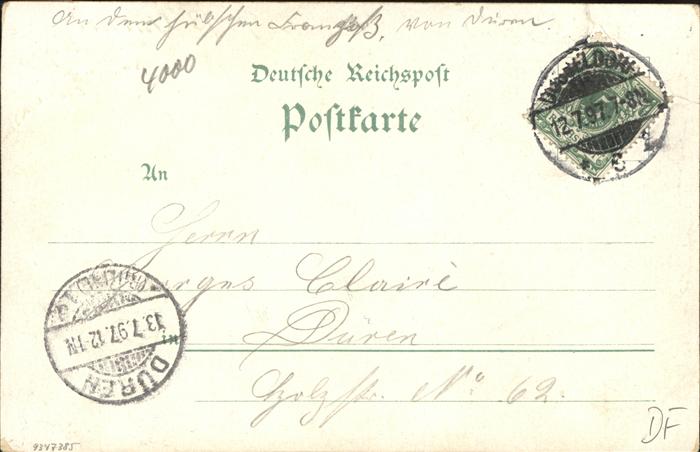 An dem hübschen Franzoß, von Düren.
4000
Deutsche Reichspost
Postkarte
An
DÜSSELDORF
12.7.97.7-8N
* C *
Herrn
Georges Clairé
in Düren
Holzstr. No. 62.
13.7.97.12-1N
DÜREN
DF
9347385